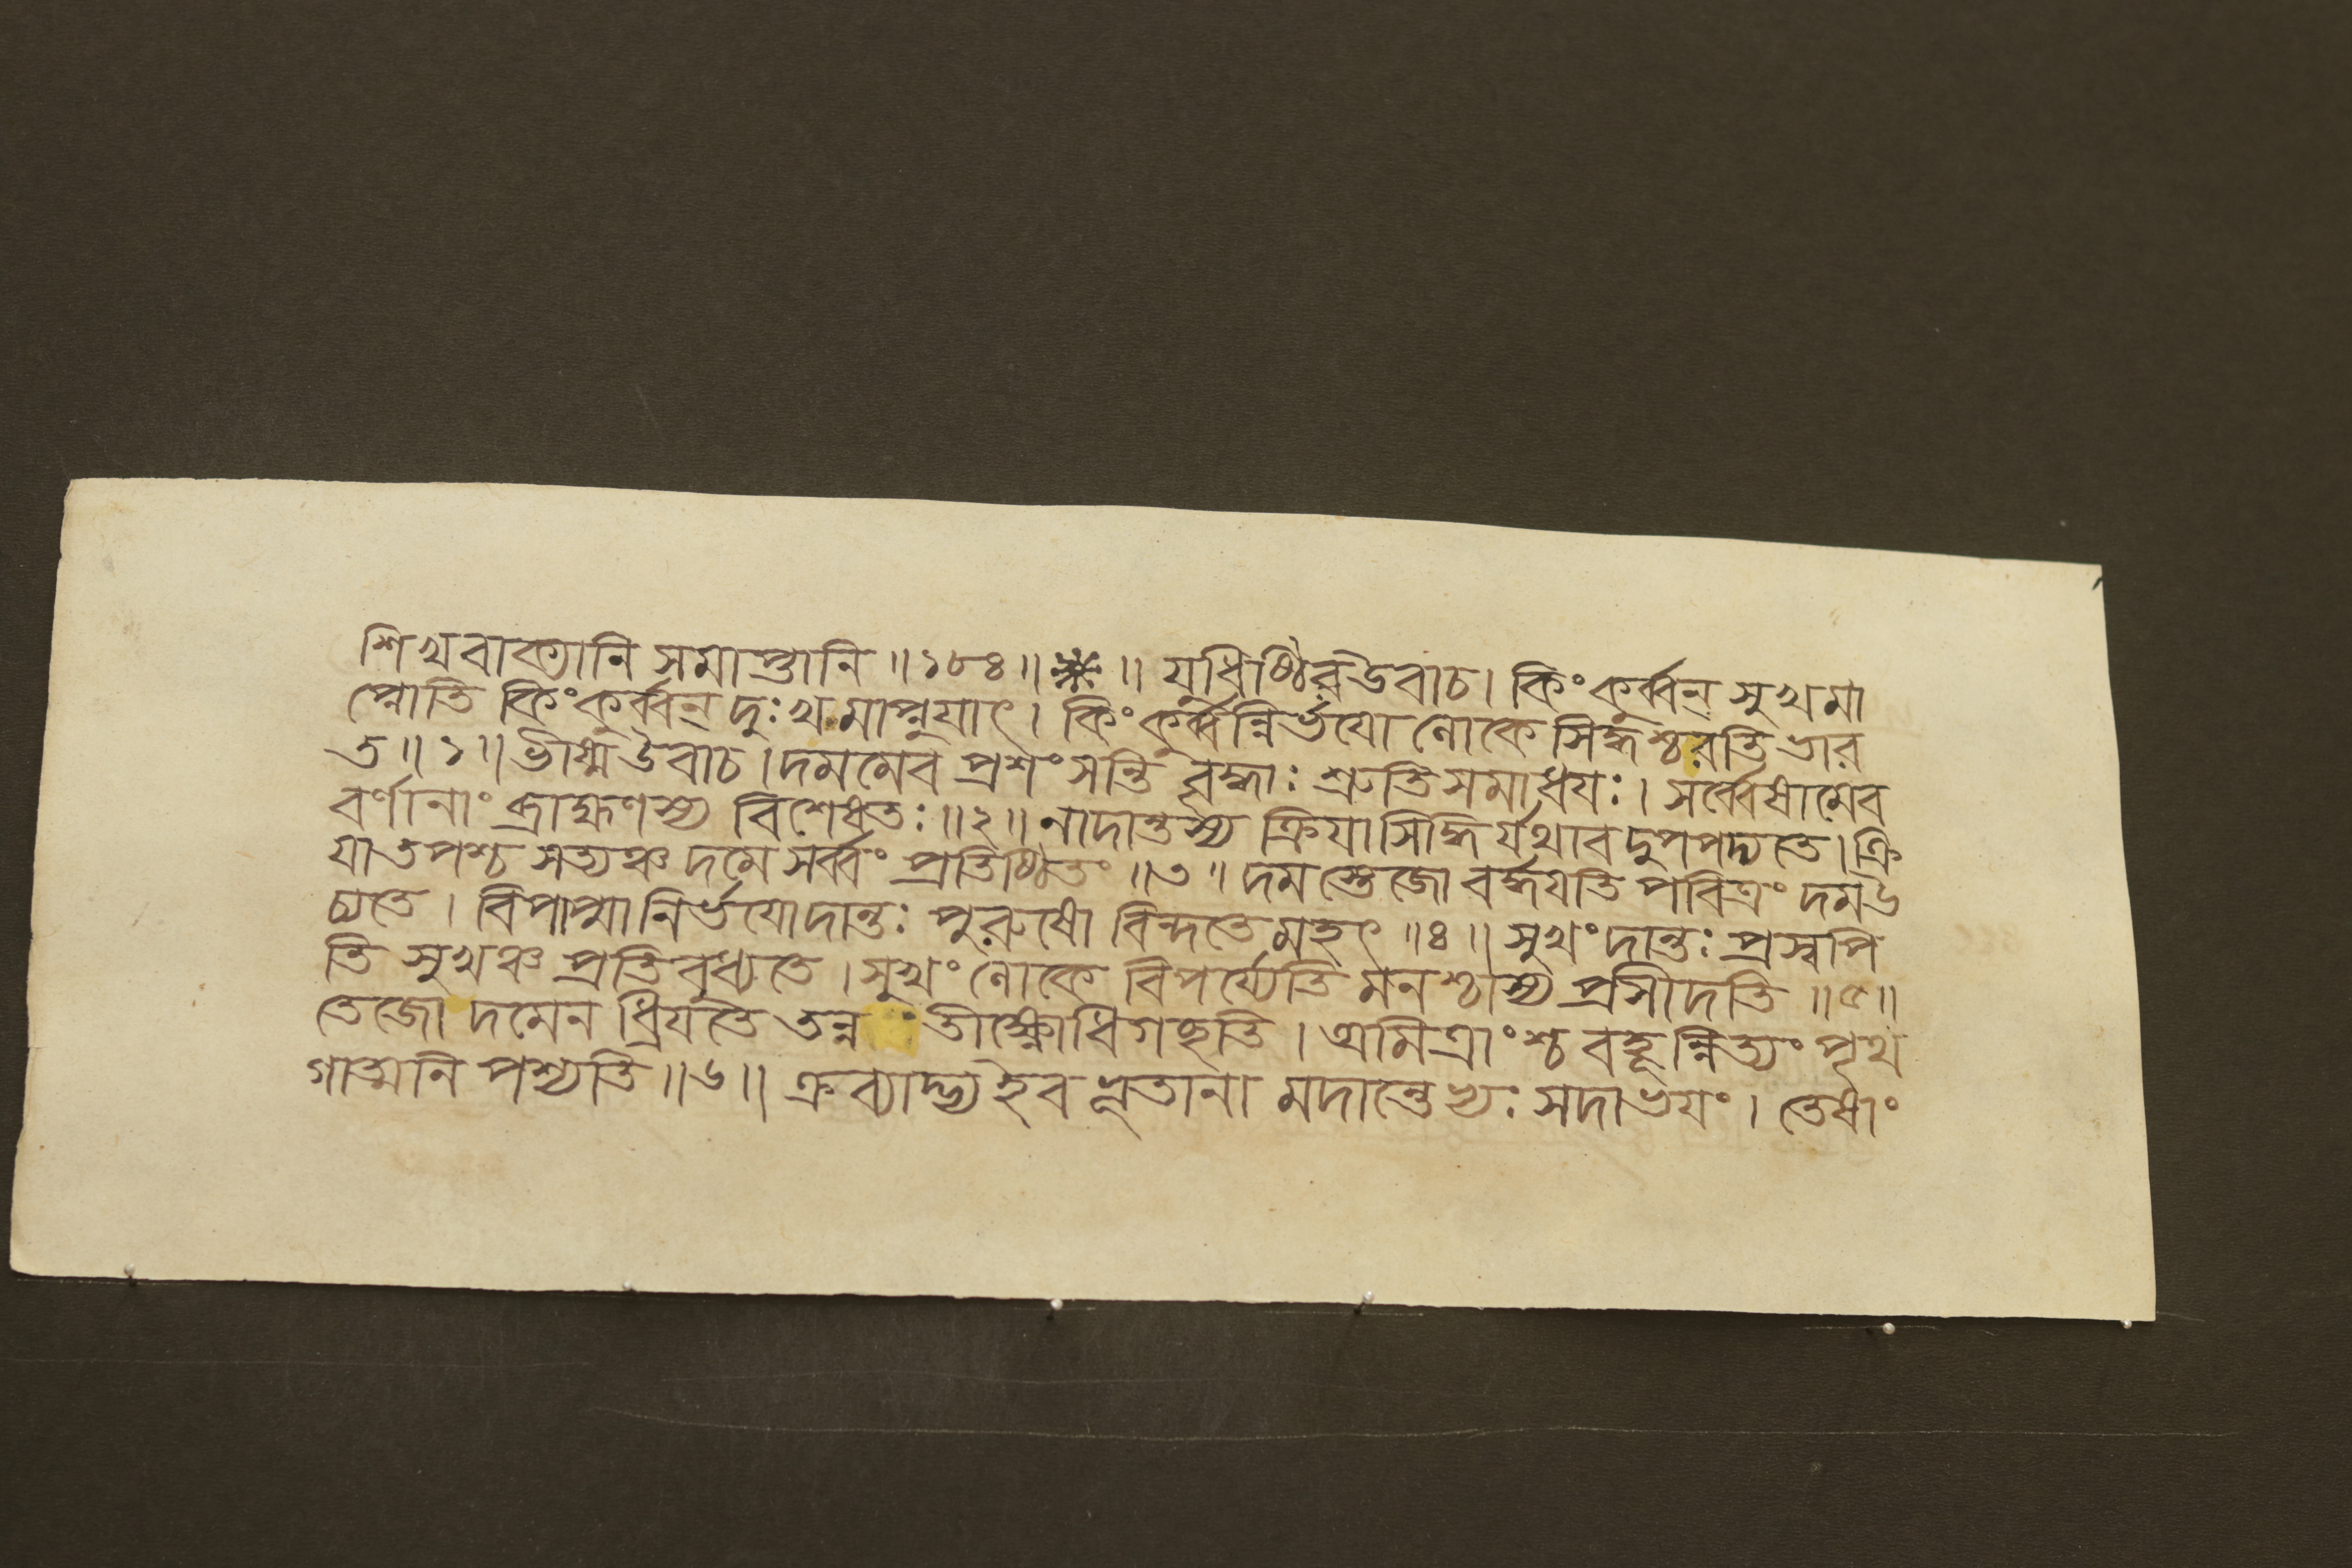 শিখবাক্যানি সমাপ্তানি ॥১৮৪॥ ❋ ॥ যুধিষ্ঠির উবাচ। কিং কুর্ব্বন্ সুখমা
প্নোতি কিং কুর্ব্বন্ দুঃখমাপ্নুয়াৎ। কিং কুর্ব্বন্নির্ভয়ো লোকে সিদ্ধশ্চরতি ভার
ত॥১॥ ভীষ্ম উবাচ। দমমেব প্রশংসন্তি বৃদ্ধাঃ শ্রুতিসমাধয়ঃ। সর্ব্বেষামেব
বর্ণানাং ব্রাহ্মণস্য বিশেষতঃ॥২॥ নাদান্তস্য ক্রিয়াসিদ্ধির্যথাবদুপপদ্যতে। ক্রি
য়াতপশ্চ সত্যঞ্চ দমে সর্ব্বং প্রতিষ্ঠিতং ॥৩॥ দমস্তেজো বর্দ্ধয়তি পবিত্রং দম উ
চ্যতে। বিপাপ্মা নির্ভয়োদান্তঃ পুরুষো বিন্দতে মহৎ ॥৪॥ সুখং দান্তঃ প্রস্বপি
তি সুখঞ্চ প্রতিবুধ্যতে। সুখং লোকে বিপর্য্যেতি মনশ্চাস্য প্রসীদতি ॥৫॥
তেজো দমেন ধ্রিয়তে তন্ন তীক্ষ্ণোধিগচ্ছতি। অমিত্রাংশ্চ বহূন্নিত্যং পৃথ
গাত্মনি পশ্যতি॥৬॥ ক্রব্যাদ্ভ্য ইব ভূতানা মদান্তেভ্যঃ সদাভয়ং। তেষাং